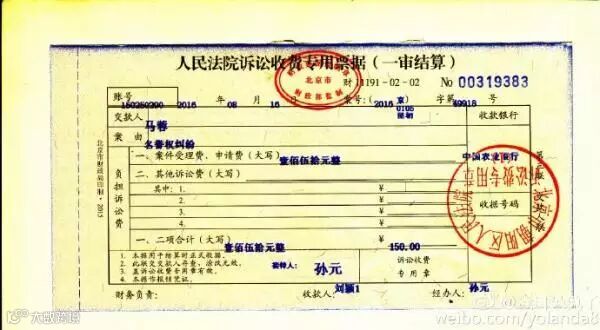 人民法院诉讼收费专用票据（一审结算）
北京市
财政部监制
财 11191-02-02 No 00319383
账号 150250200 2016 年 08 月 16 日 案号：(2016 京) 0105 字第 49918 号
交款人 马蓉 收款银行
案由 名誉权纠纷
一、案件受理费、申请费（大写） 壹佰伍拾元整 ¥ 中国农业银行
负担诉讼费
二、其他诉讼费（大写） ¥
其中：1. ¥
2. ¥ 收据号码
3. ¥
4. ¥
一、二项合计（大写） 壹佰伍拾元整 ¥ 150.00
1．本据用于结算时正式收据。 诉讼收费
2．此联交交款人存查，涂改无效。 孙元
3．盖诉讼收费专用章有效。 专用章
4．本据作报结凭证。
财务负责： 收款人： 刘颖1 经办人： 孙元
北京市财政局印制·2015
北京市朝阳区人民法院
诉讼费专用章
大风号
weibo.com/yolanda8